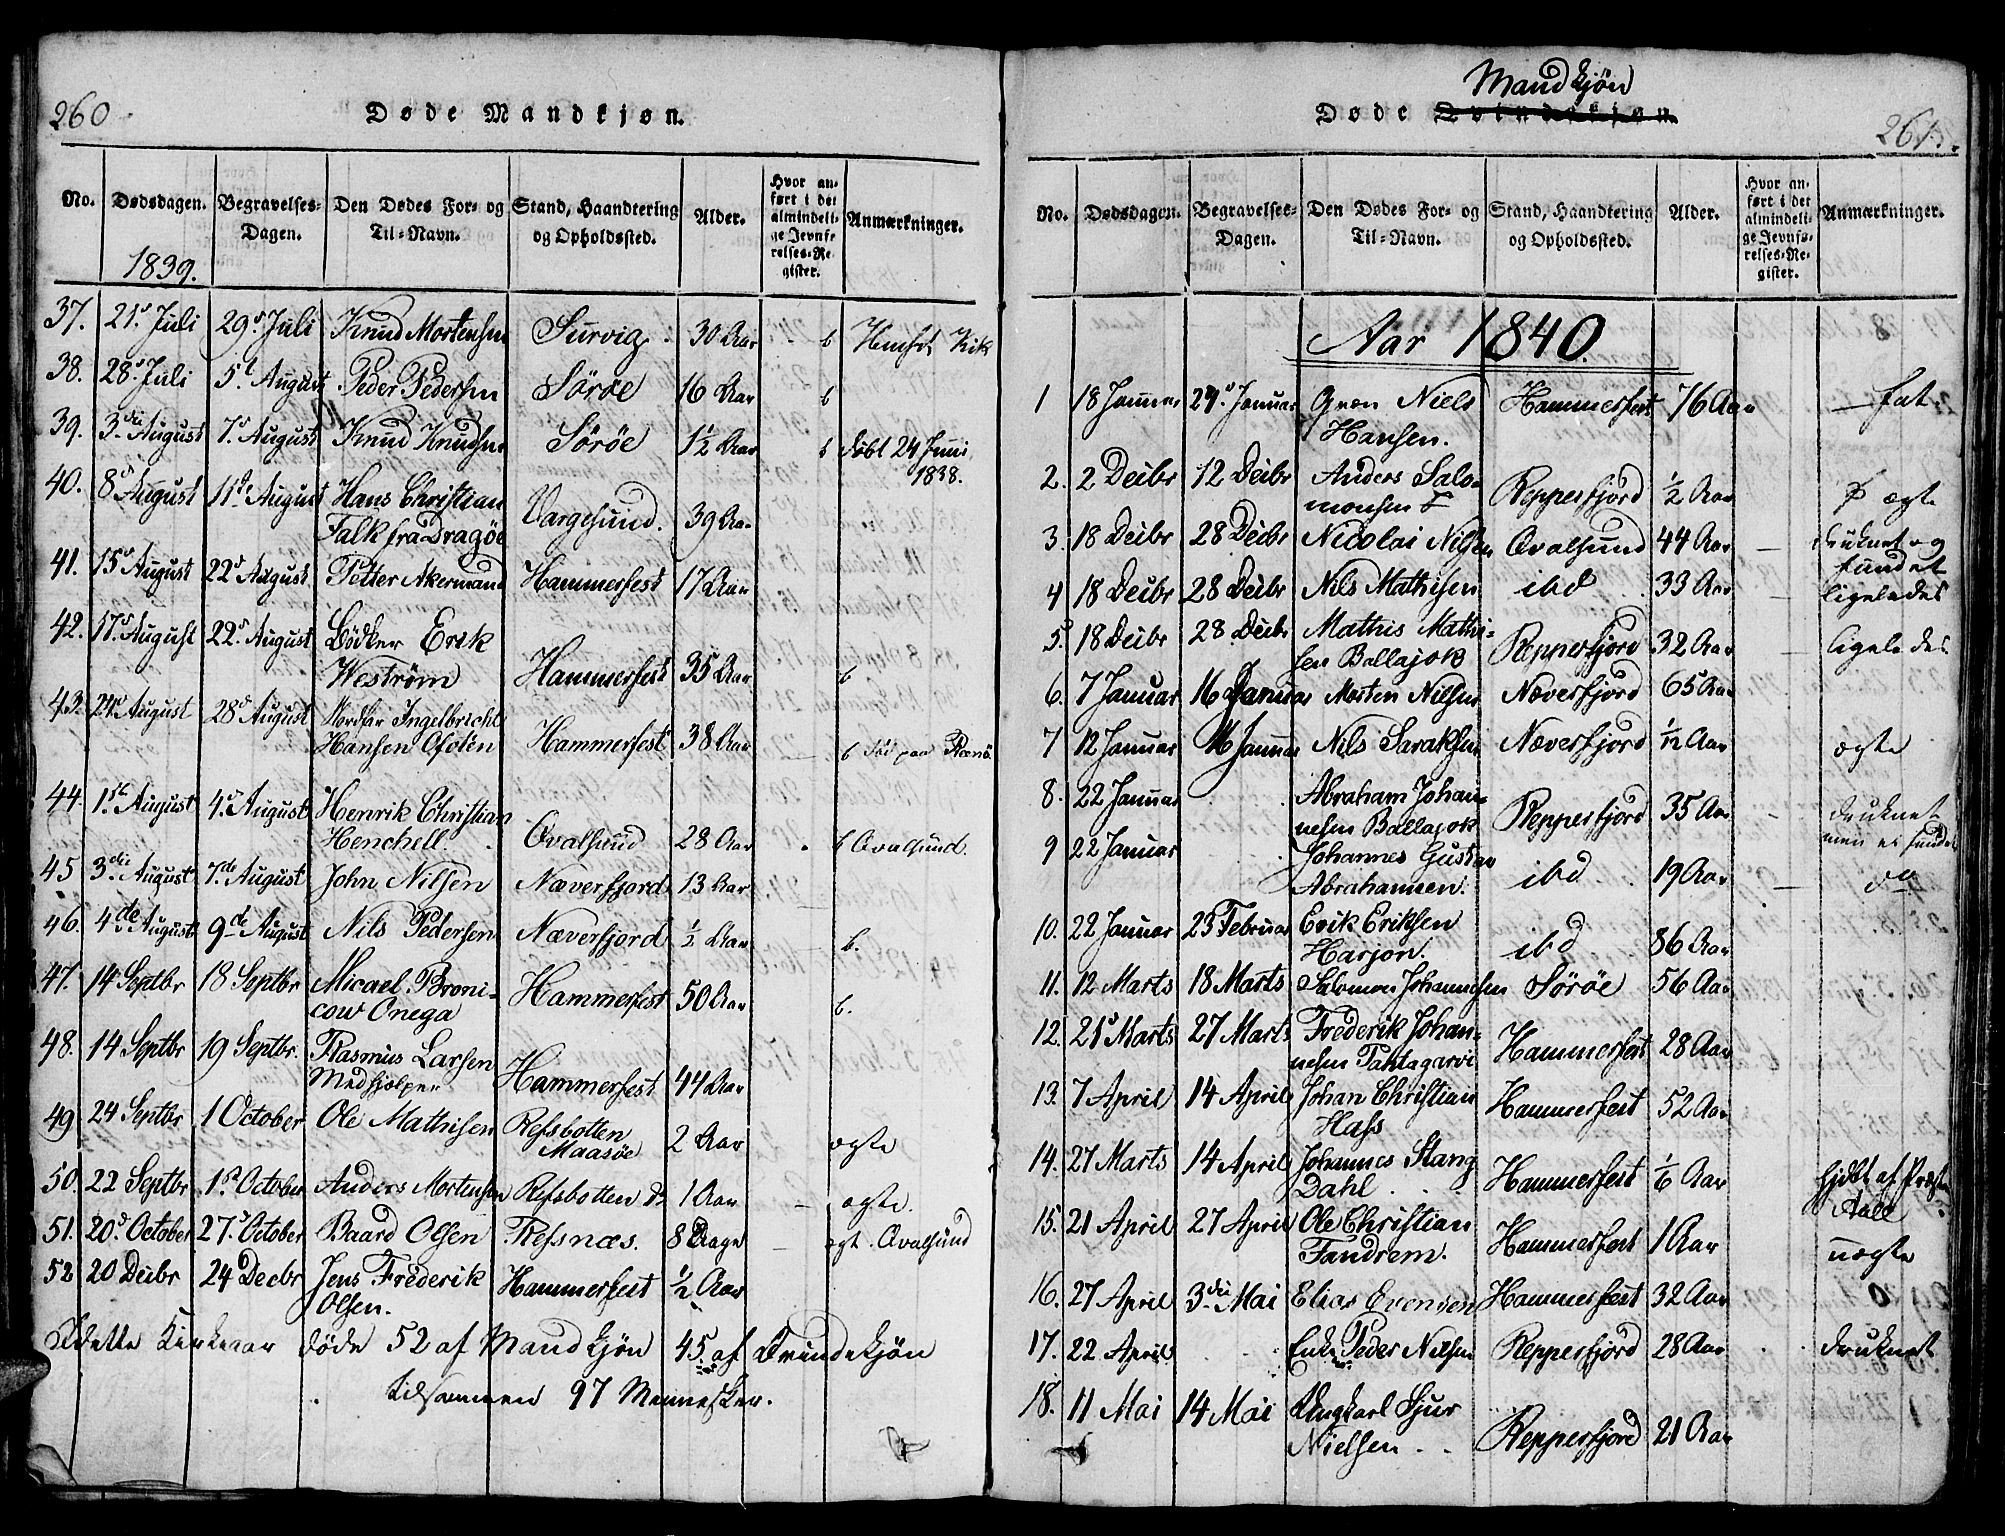 260
Døde Mandkjøn.
No. Dødsdagen. Begravelses-Dagen. Den Dødes For- og Til-Navn. Stand, Haandtering og Opholdssted. Alder. Hvor anført i det almindelige Jevnførelses-Register. Anmærkninger.
1839.
37. 21. Juli 29. Juli Knud Mortensen Survig 30 Aar
38. 28. Juli 5. August Peder Pedersen Sørøe 16 Aar
39. 3die August 7. August Knud Knudsen Sørøe 1½ Aar døbt 24 Juni 1838.
40. 8. August 11. August Hans Christian
Falk fra Dragøe Vargesund. 39 Aar
41. 15. August 22. August Petter Akermand Hammerfest 17 Aar
42. 17. August 22. August Bødker Erik
Westrøm Hammerfest 35 Aar
43. 24. August 28. August Nordfar Ingelbricht
Hansen Ofoten Hammerfest 38 Aar
44. 1. August 4. August Henrik Christian
Henchell. Qvalsund 28 Aar Qvalsund.
45 3die August 7de August John Nilsen Næverfjord 13 Aar
46. 4de August 9de August Nils Pedersen Næverfjord ½ Aar
47. 14 Septbr 18 Septbr Micael Broni-
cow Onega Hammerfest 50 Aar
48. 14 Septbr 19 Septbr. Rasmus Larsen
Medhjelper Hammerfest 44 Aar
49 24 Septbr 1 October Ole Mathisen Refsbotten
Maasøe 2 Aar ægte
50. 22 Septbr 1. October Anders Mortensen Refsbotten 1 Aar ægte.
51. 20. October 27. October Baard Olsen Refsnæs. 8 Dage ægt. Qvalsund
52 20 Decbr 24 Decbr Jens Frederik
Olsen. Hammerfest ½ Aar
I dette Kirkeaar døde 52 af Mandkjøn 45 af Qvindekjøn
tilsammen 97 Mennesker.
261.
Mandkjøn
Døde Qvindekjøn.
No. Dødsdagen. Begravelses-Dagen. Den Dødes For- og Til-Navn. Stand, Haandtering og Opholdssted. Alder. Hvor anført i det almindelige Jevnførelses-Register. Anmærkninger.
Aar 1840.
1 18 Januar 24. Januar Qvæn Niels
Hansen. Hammerfest 76 Aar fat
2. 2 Decbr 12 Decbr Anders Salo-
monsen Repperfjord ½ Aar ægte
3. 18 Decbr 28 Decbr Nicolai Nilsen Qvalsund 44 Aar druknet og
fundet
4 18 Decbr 28 Decbr Nils Mathisen ibd 33 Aar ligeledes
5. 18 Decbr 28 Decbr Mathis Mathi-
sen Ballajok Repperfjord 32 Aar ligeledes
6. 7 Januar 16 Januar Morten Nilsen Næverfjord 65 Aar
7 12 Januar 16 Januar Nils Saraksen Næverfjord 1/12 Aar ægte
8. 22 Januar Abraham Johan-
nesen Ballajok Repperfjord 35 Aar druknet
men ei fundet
9 22 Januar Johannes Gustav
Abrahamsen. ibd 19 Aar do
10. 22 Januar 23 Februar Erik Eriksen
Harjon. ibd 86 Aar
11. 12 Marts 18 Marts Salomon Johannesen Sørøe 56 Aar
12. 21 Marts 27 Marts Frederik Johan-
nesen Tahtagarvi Hammerfest 28 Aar
13. 7 April 14 April Johan Christian
Hass Hammerfest 52 Aar
14. 27 Marts 14 April Johannes Stang
Dahl Hammerfest 1/6 Aar hjdbt af Præsten
Aall
15. 21 April 27 April Ole Christian
Tandrem. Hammerfest 1 Aar uægte
16. 27 April 3die Mai Elias Evensen Hammerfest 32 Aar 0
17. 22 April Enke Peder Nilsen Repperfjord 28 Aar druknet
18. 11 Mai 14 Mai Ungkarl Sjur
Nielsen Repperfjord 21 Aar